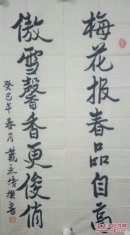 梅花报春品自高
傲雪馨香更俊俏
癸巳年春月戴永